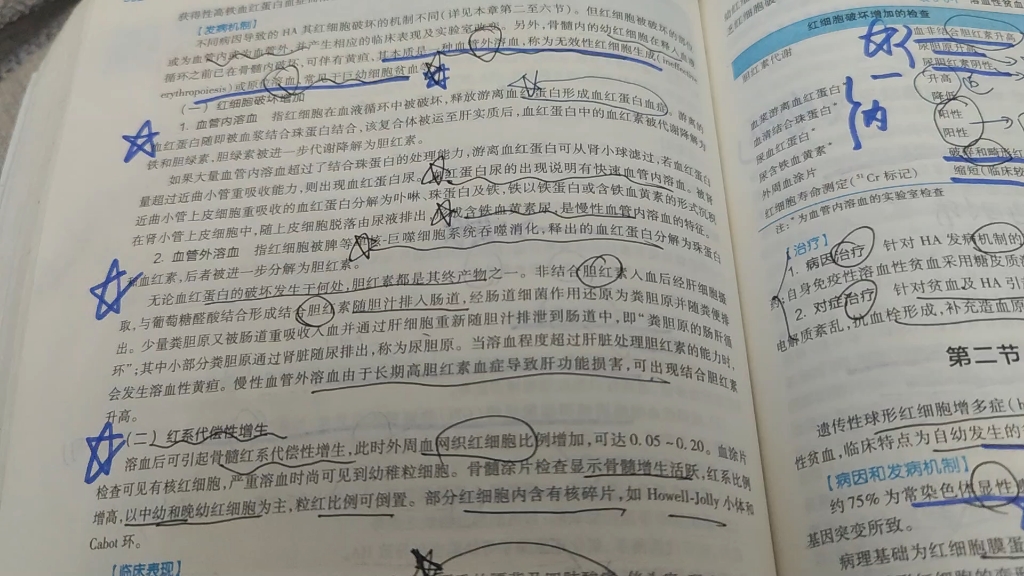 获得性高铁血红蛋白血症
【发病机制】
不同病因导致的 HA 其红细胞破坏的机制不同(详见本章第二至六节)。但红细胞被破坏的部位
或为血管内或为血管外,并产生相应的临床表现及实验室改变。另外,骨髓内的幼红细胞在释入血
循环之前已在骨髓内破坏,可伴有黄疸,其本质是一种血管外溶血,称为无效性红细胞生成(ineffective
erythropoiesis)或原位溶血,常见于巨幼细胞贫血
(一) 红细胞破坏增加
1. 血管内溶血 指红细胞在血液循环中被破坏,释放游离血红蛋白形成血红蛋白血症。游离的
血红蛋白随即被血浆结合珠蛋白结合,该复合体被运至肝实质后,血红蛋白中的血红素被代谢降解为
铁和胆绿素,胆绿素被进一步代谢降解为胆红素。
如果大量血管内溶血超过了结合珠蛋白的处理能力,游离血红蛋白可从肾小球滤过,若血红蛋白
量超过近曲小管重吸收能力,则出现血红蛋白尿。血红蛋白尿的出现说明有快速血管内溶血。被肾
近曲小管上皮细胞重吸收的血红蛋白分解为卟啉、珠蛋白及铁,铁以铁蛋白或含铁血黄素的形式沉积
在肾小管上皮细胞中,随上皮细胞脱落由尿液排出,形成含铁血黄素尿,是慢性血管内溶血的特征。
2. 血管外溶血 指红细胞被脾等单核-巨噬细胞系统吞噬消化,释出的血红蛋白分解为珠蛋白
和血红素,后者被进一步分解为胆红素。
无论血红蛋白的破坏发生于何处,胆红素都是其终产物之一。非结合胆红素入血后经肝细胞摄
取,与葡萄糖醛酸结合形成结合胆红素随胆汁排入肠道,经肠道细菌作用还原为粪胆原并随粪便排
出。少量粪胆原又被肠道重吸收入血并通过肝细胞重新随胆汁排泄到肠道中,即“粪胆原的肠肝循
环”;其中小部分粪胆原通过肾脏随尿排出,称为尿胆原。当溶血程度超过肝脏处理胆红素的能力时,
会发生溶血性黄疸。慢性血管外溶血由于长期高胆红素血症导致肝功能损害,可出现结合胆红素
升高。
(二) 红系代偿性增生
溶血后可引起骨髓红系代偿性增生,此时外周血网织红细胞比例增加,可达 0.05~0.20。血涂片
检查可见有核红细胞,严重溶血时尚可见到幼稚粒细胞。骨髓涂片检查显示骨髓增生活跃,红系比例
增高,以中幼和晚幼红细胞为主,粒红比例可倒置。部分红细胞内含有核碎片,如 Howell-Jolly 小体和
Cabot 环。
【临床表现】
红细胞破坏增加的检查
胆红素代谢
血非结合胆红素升高
尿胆原升高
尿胆红素阴性
外
内
血浆游离血红蛋白* 升高
血清结合珠蛋白* 降低
尿血红蛋白* 阳性
尿含铁血黄素* 阳性
外周血涂片 破碎和畸形红
红细胞寿命测定(⁵¹Cr 标记) 缩短(临床较
注:*为血管内溶血的实验室检查
【治疗】
1. 病因治疗 针对 HA 发病机制的
自身免疫性溶血性贫血采用糖皮质
2. 对症治疗 针对贫血及 HA 引
电解质紊乱,抗血栓形成,补充造血原
第二节
遗传性球形红细胞增多症(h
性贫血,临床特点为自幼发生的
【病因和发病机制】
约 75%为常染色体显性
基因突变所致。
病理基础为红细胞膜蛋